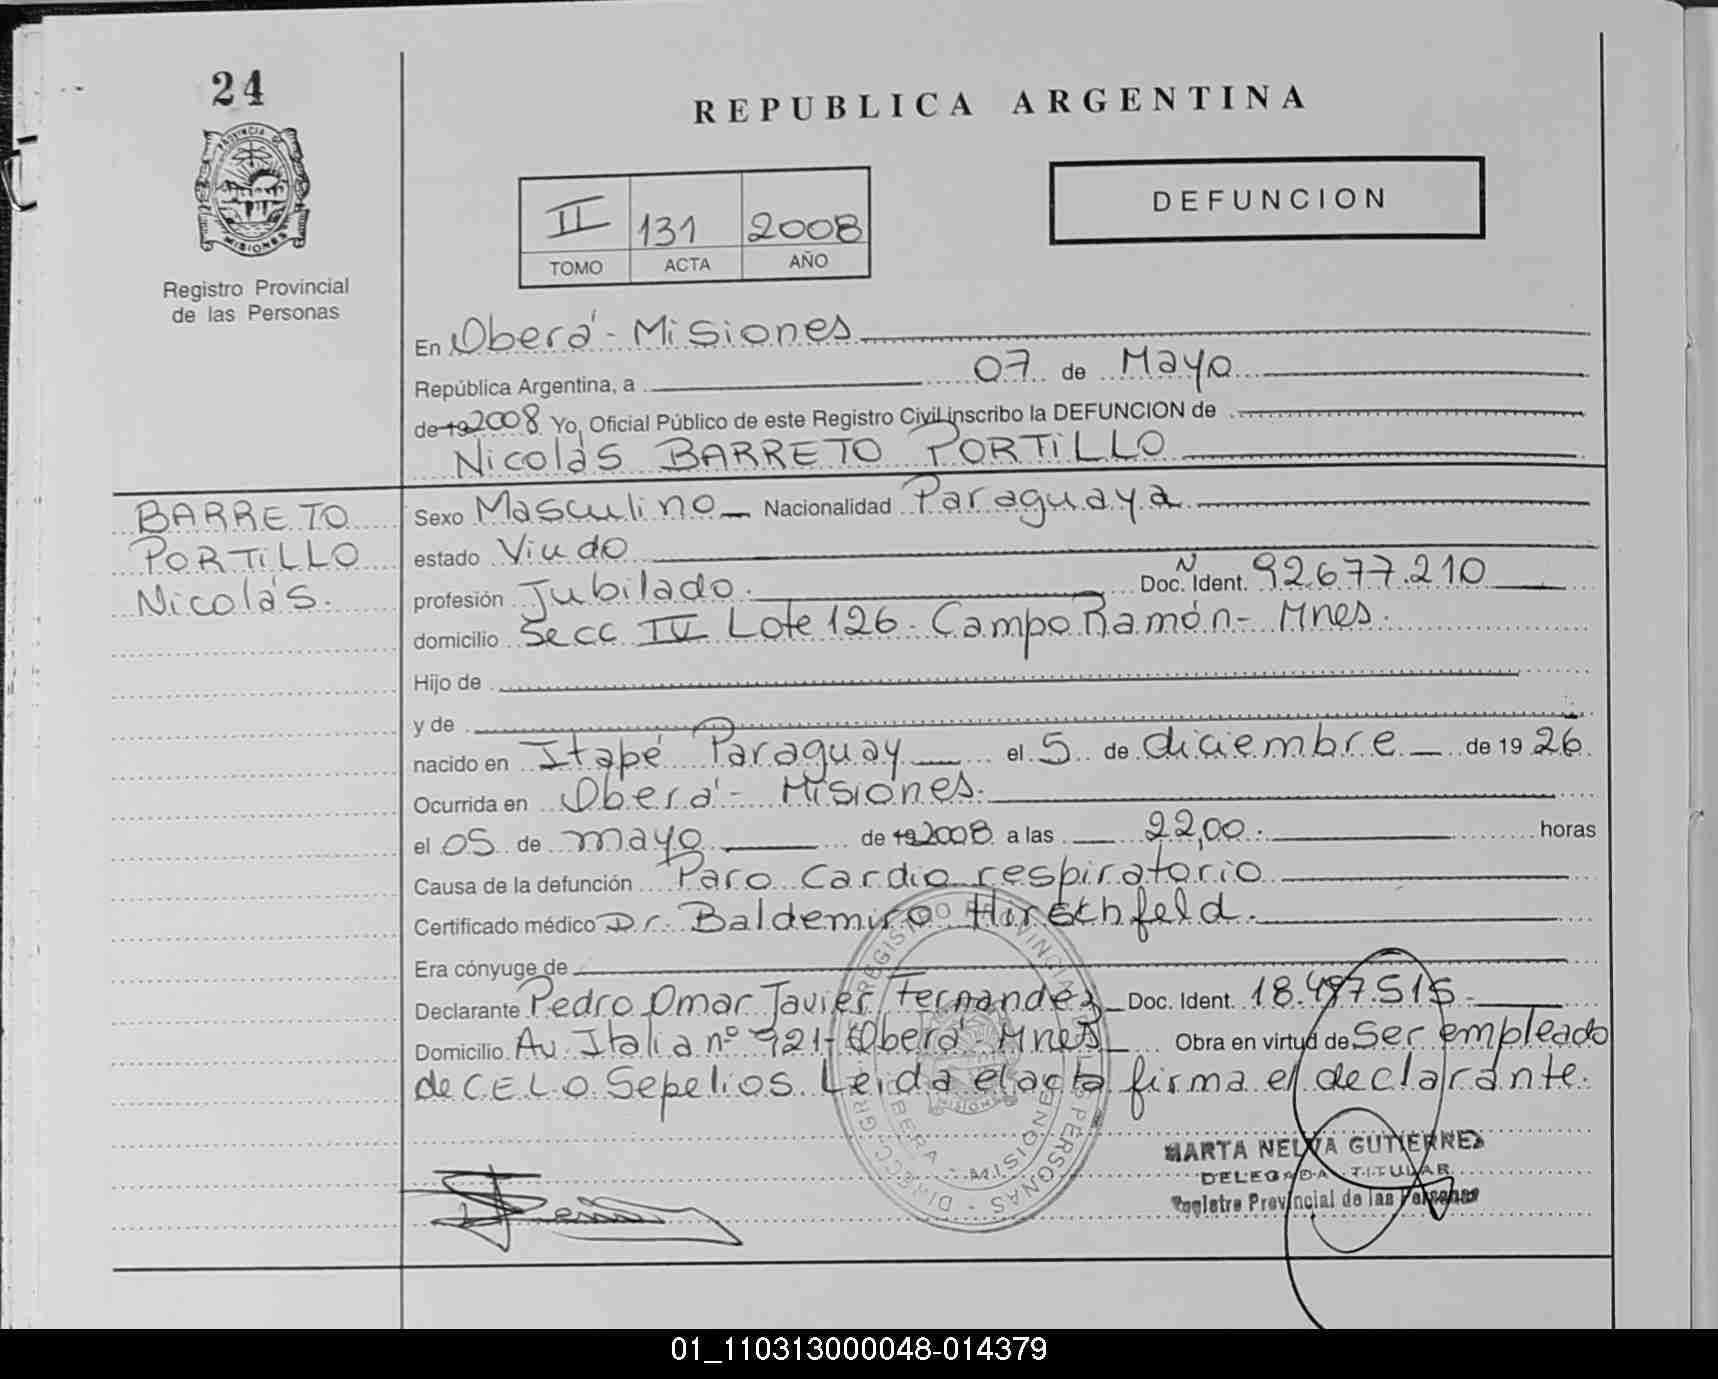 24
PROVINCIA DE
MISIONES
Registro Provincial
de las Personas
REPUBLICA ARGENTINA
II 131 2008
TOMO ACTA AÑO
DEFUNCION
En Oberá - Misiones
República Argentina, a 07 de Mayo
de 19 2008 Yo, Oficial Público de este Registro Civil inscribo la DEFUNCION de
Nicolás BARRETO PORTILLO
BARRETO
PORTILLO
Nicolás.
Sexo Masculino Nacionalidad Paraguaya
estado Viudo
profesión Jubilado. Doc. N Ident. 92.677.210
domicilio Secc IV Lote 126. Campo Ramón - Mnes.
Hijo de
y de
nacido en Itapé Paraguay el 5 de diciembre de 19 26.
Ocurrida en Oberá - Misiones.
el 05 de mayo de 19 2008 a las 22,00. horas
Causa de la defunción Paro Cardio respiratorio
Certificado médico Dr. Baldemiro Hirschfeld.
Era cónyuge de
Declarante Pedro Omar Javier Fernandez Doc. Ident. 18.497.515
Domicilio Av. Italia nº 921 - Oberá - Mnes Obra en virtud de Ser empleado
de C.E.L.O. Sepelios. Leida el acta firma el declarante.
MARTA NELVA GUTIERREZ
DELEGADA TITULAR
Registro Provincial de las Personas
01_110313000048-014379